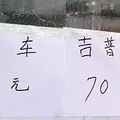 车 吉普
元 70